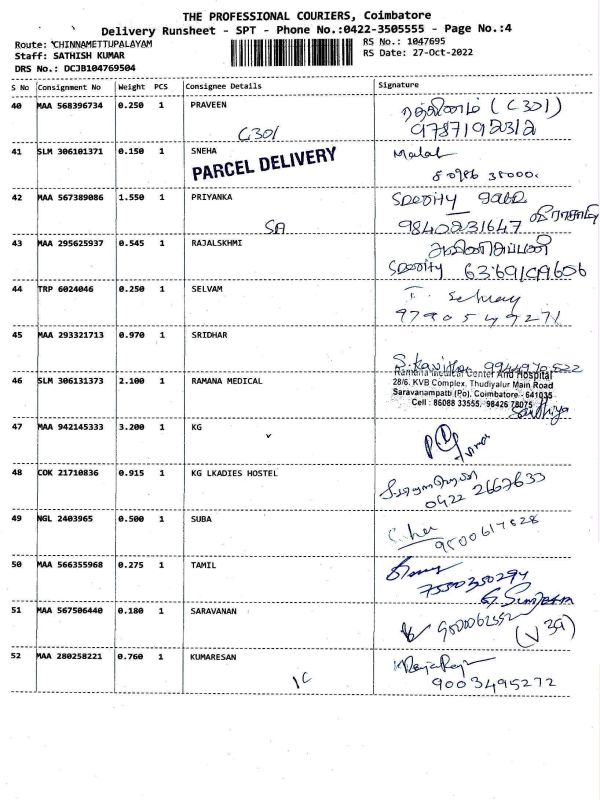 THE PROFESSIONAL COURIERS, Coimbatore
Delivery Runsheet - SPT - Phone No.:0422-3505555 - Page No.:4
Route: CHINNAMETTUPALAYAM
RS No.: 1047695
Staff: SATHISH KUMAR
RS Date: 27-Oct-2022
DRS No.: DCJB104769504
S No Consignment No Weight PCS Consignee Details Signature
40 MAA 568396734 0.250 1 PRAVEEN
ரத்தினம் (C301)
C301 9787192312
41 SLM 306101371 0.150 1 SNEHA
PARCEL DELIVERY
42 MAA 567389086 1.550 1 PRIYANKA
SA 9840231647
43 MAA 295625937 0.545 1 RAJALSKHMI
6369109606
44 TRP 6024046 0.250 1 SELVAM
9790549271
45 MAA 293321713 0.970 1 SRIDHAR
S. Kavitha 9944970522
46 SLM 306131373 2.100 1 RAMANA MEDICAL
Ramana Medical Center And Hospital
28/6. KVB Complex. Thudiyalur Main Road
Saravanampatti (Po). Coimbatore - 641035
Cell : 86088 33555, 98426 78075
Sandhiya
47 MAA 942145333 3.200 1 KG
48 COK 21710836 0.915 1 KG LKADIES HOSTEL
0422 2667633
49 NGL 2403965 0.500 1 SUBA
9500617628
50 MAA 566355968 0.275 1 TAMIL
7550350294
51 MAA 567506440 0.180 1 SARAVANAN
9500062552
(V39)
52 MAA 280258221 0.760 1 KUMARESAN
1C 9003495272